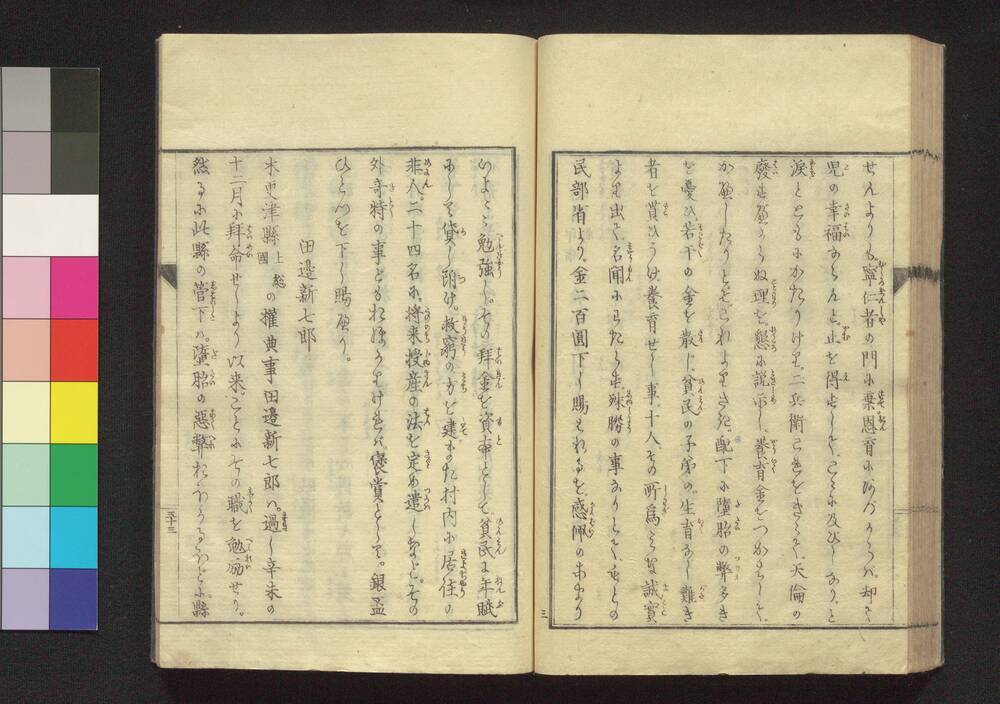 せんよりも寧仁者の門に棄恩育にあづからバ却て
児の幸福ならんと止を得ずしてこゝに及びしなりと
涙とともにかたりけり二兵衛これをきゝて天倫の
廢す可からぬ理を懇に説示し養育金をつかハして
かへしたりとぞこれより先配下に墮胎の弊多き
を憂ひ若干の金を散じ貧民の子弟の生育なし難き
者を貰ひうけ養育せし事十人その所為みな誠實
より出て名聞にわたらず殊勝の事なりとて
民部省より金二百圓下し賜ハれるを感佩のあまり
いよ〳〵勉強しその拜金を資本として貧民に年賦
にして貸し附け救窮の方を建また村内に居住の
非人二十四名に将来授産の法を定め遣しなどその
外奇特の事ども
褒賞として銀盃
ひとつを下し賜へり
田邊新七郎
木更津縣上総國の權典事田邊新七郎ハ過し辛未の
十二月に拜命せしより以来ことにその職を勉励せり
然るに此縣の管下ハ墮胎の惡弊
縣
三
五十三